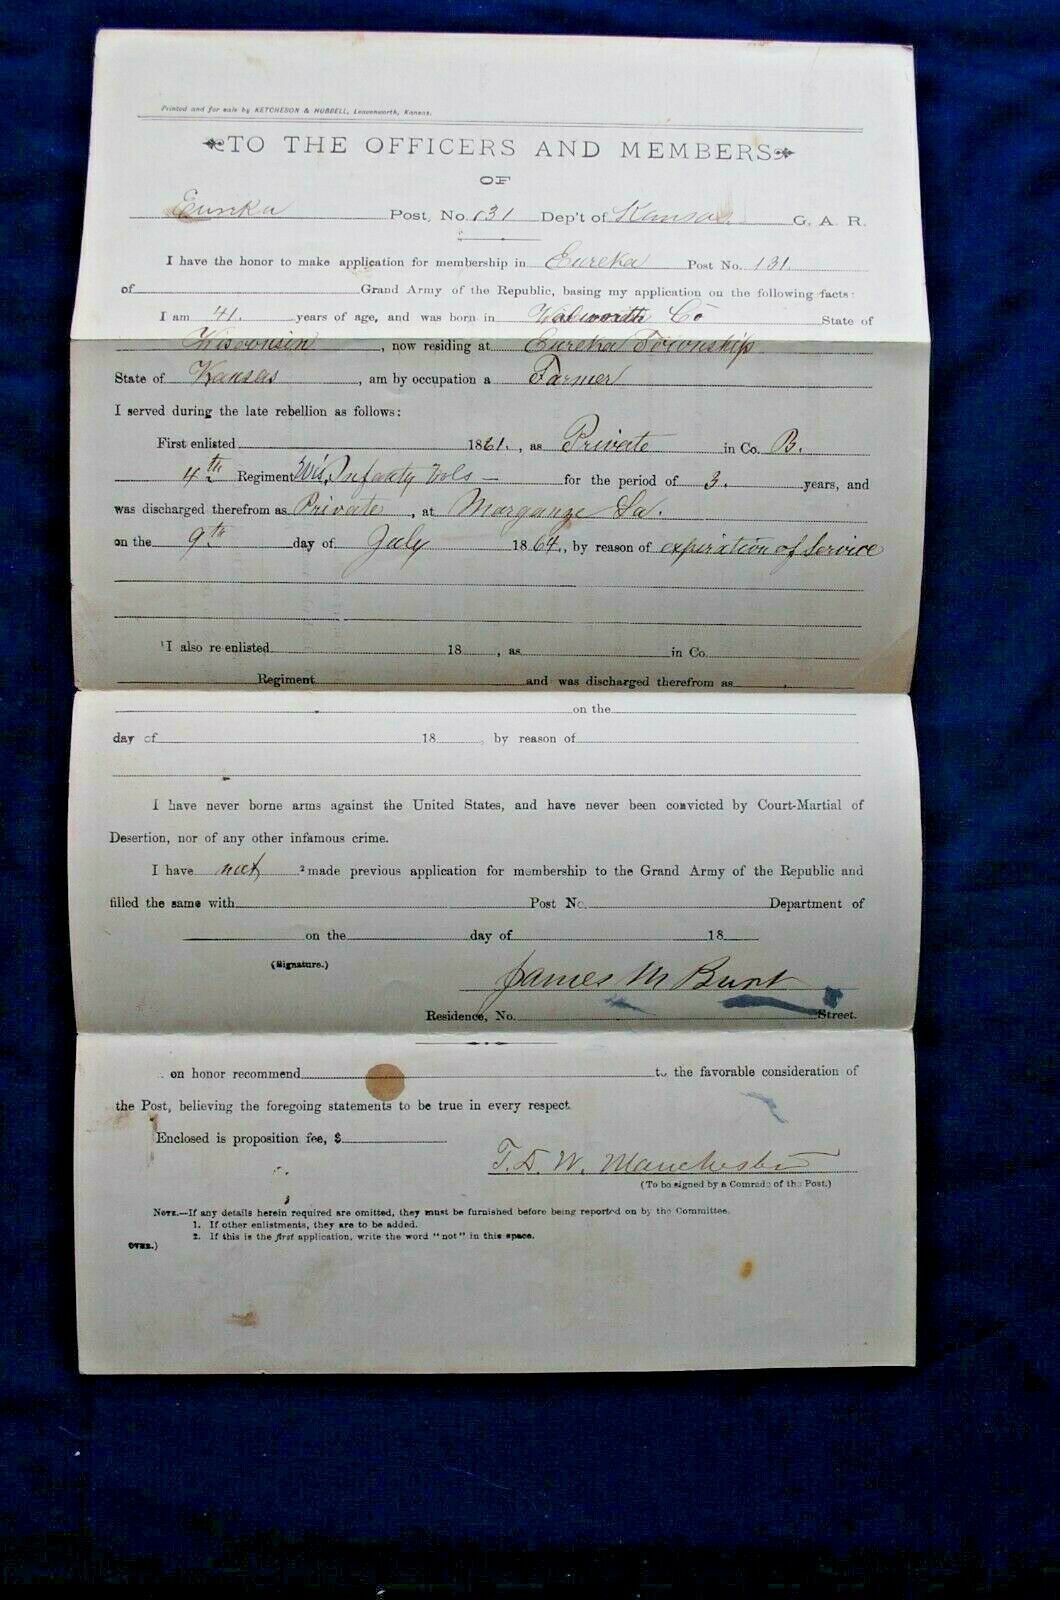 Printed and for sale by KETCHESON & HUBBELL, Leavenworth, Kansas.
TO THE OFFICERS AND MEMBERS
OF
Eureka Post, No. 131 Dep't of Kansas. G. A. R.
I have the honor to make application for membership in Eureka Post No. 131.
of Grand Army of the Republic, basing my application on the following facts:
I am 41. years of age, and was born in Walworth Co State of
Wisconsin, now residing at Eureka Township
State of Kansas, am by occupation a Farmer
I served during the late rebellion as follows:
First enlisted 1861., as Private in Co. B.
4th Regiment Wis. Infanty Vols — for the period of 3. years, and
was discharged therefrom as Private, at Morganze La.
on the 9th day of July 1864., by reason of expiration of Service
1I also re enlisted 18 , as in Co.
Regiment and was discharged therefrom as
on the
day of 18 , by reason of
I have never borne arms against the United States, and have never been convicted by Court-Martial of
Desertion, nor of any other infamous crime.
I have not 2 made previous application for membership to the Grand Army of the Republic and
filled the same with Post No. Department of
on the day of 18
(Signature.) James M Burt
Residence, No. Street.
on honor recommend to the favorable consideration of
the Post, believing the foregoing statements to be true in every respect.
Enclosed is proposition fee, $
T. D. W. Manchester
(To be signed by a Comrade of the Post.)
NOTE.—If any details herein required are omitted, they must be furnished before being reported on by the Committee.
1. If other enlistments, they are to be added.
2. If this is the first application, write the word "not" in this space.
OVER.)